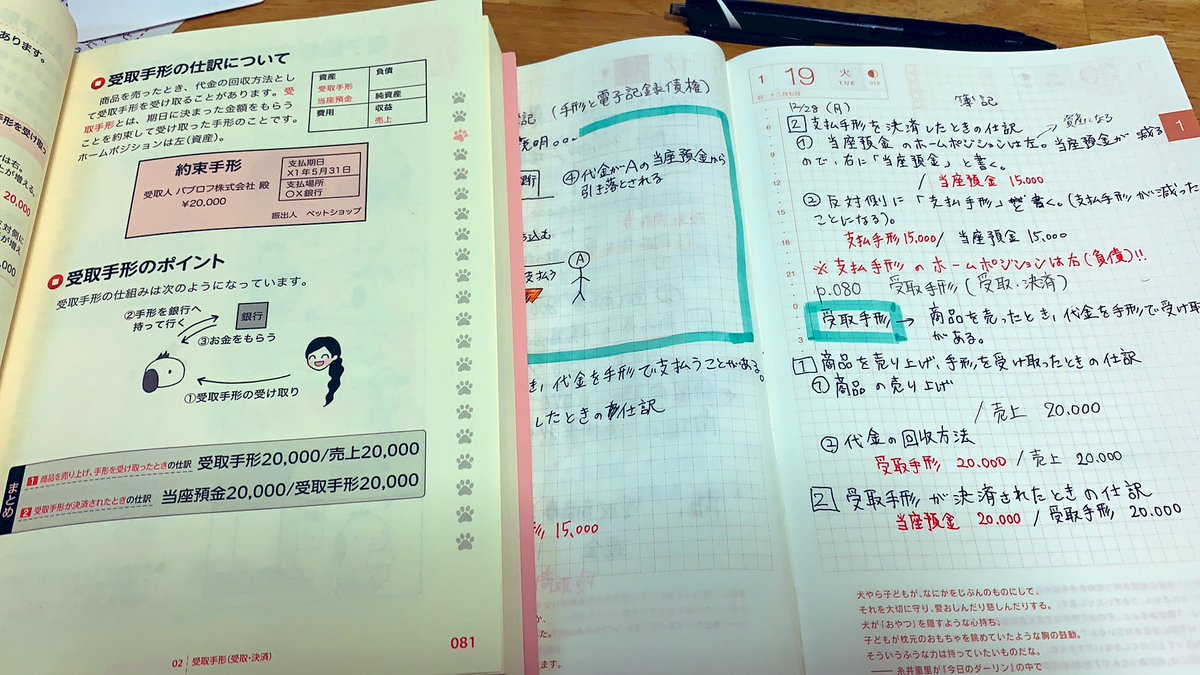 あります。
受取手形の仕訳について
商品を売ったとき、代金の回収方法とし
て受取手形を受け取ることがあります。受
取手形とは、期日に決まった金額をもらう
ことを約束して受け取った手形のことです。
ホームポジションは左(資産)。
資産
負債
受取手形
当座預金
純資産
費用
収益
売上
約束手形
受取人 パブロフ株式会社 殿
¥20,000
支払期日
X1年5月31日
支払場所
○X銀行
振出人 ペットショップ
受取手形のポイント
受取手形の仕組みは次のようになっています。
②手形を銀行へ
持って行く
銀行
③お金をもらう
①受取手形の受け取り
まとめ
1 商品を売り上げ、手形を受け取ったときの仕訳 受取手形20,000/売上20,000
2 受取手形が決済されたときの仕訳 当座預金20,000/受取手形20,000
02 受取手形(受取・決済)
081
(手形と電子記録債権)
④代金がAの当座預金から
引き落とされる
込む
支払う
A
き、代金を手形で支払うことがある。
したときの仕訳
15,000
ます。
1 19 火
TUE
010
旧:十二月七日
1
12/28 (月) 簿記
2 支払手形を決済したときの仕訳
資産になる
① 当座預金のホームポジションは左。当座預金が減る
ので、右に「当座預金」と書く。
/ 当座預金 15.000
② 反対側に「支払手形」を書く。(支払手形が減った
ことになる)。
支払手形15,000/ 当座預金 15,000
※ 支払手形のホームポジションは右(負債)!!
p.080 受取手形(受取・決済)
受取手形 → 商品を売ったとき、代金を手形で受け取
がある。
1 商品を売り上げ、手形を受け取ったときの仕訳
① 商品の売り上げ
/ 売上 20.000
② 代金の回収方法
受取手形 20.000 / 売上 20,000
2 受取手形が決済されたときの仕訳
当座預金 20.000 / 受取手形 20,000
犬やら子どもが、なにかをじぶんのものにして、
それを大切に守り、愛おしんだり慈しんだりする。
犬が「おやつ」を隠すような心持ち、
子どもが枕元のおもちゃを眺めていたような胸の鼓動。
そういうふうな力は持っていたいものだな。
―― 糸井重里が『今日のダーリン』の中で